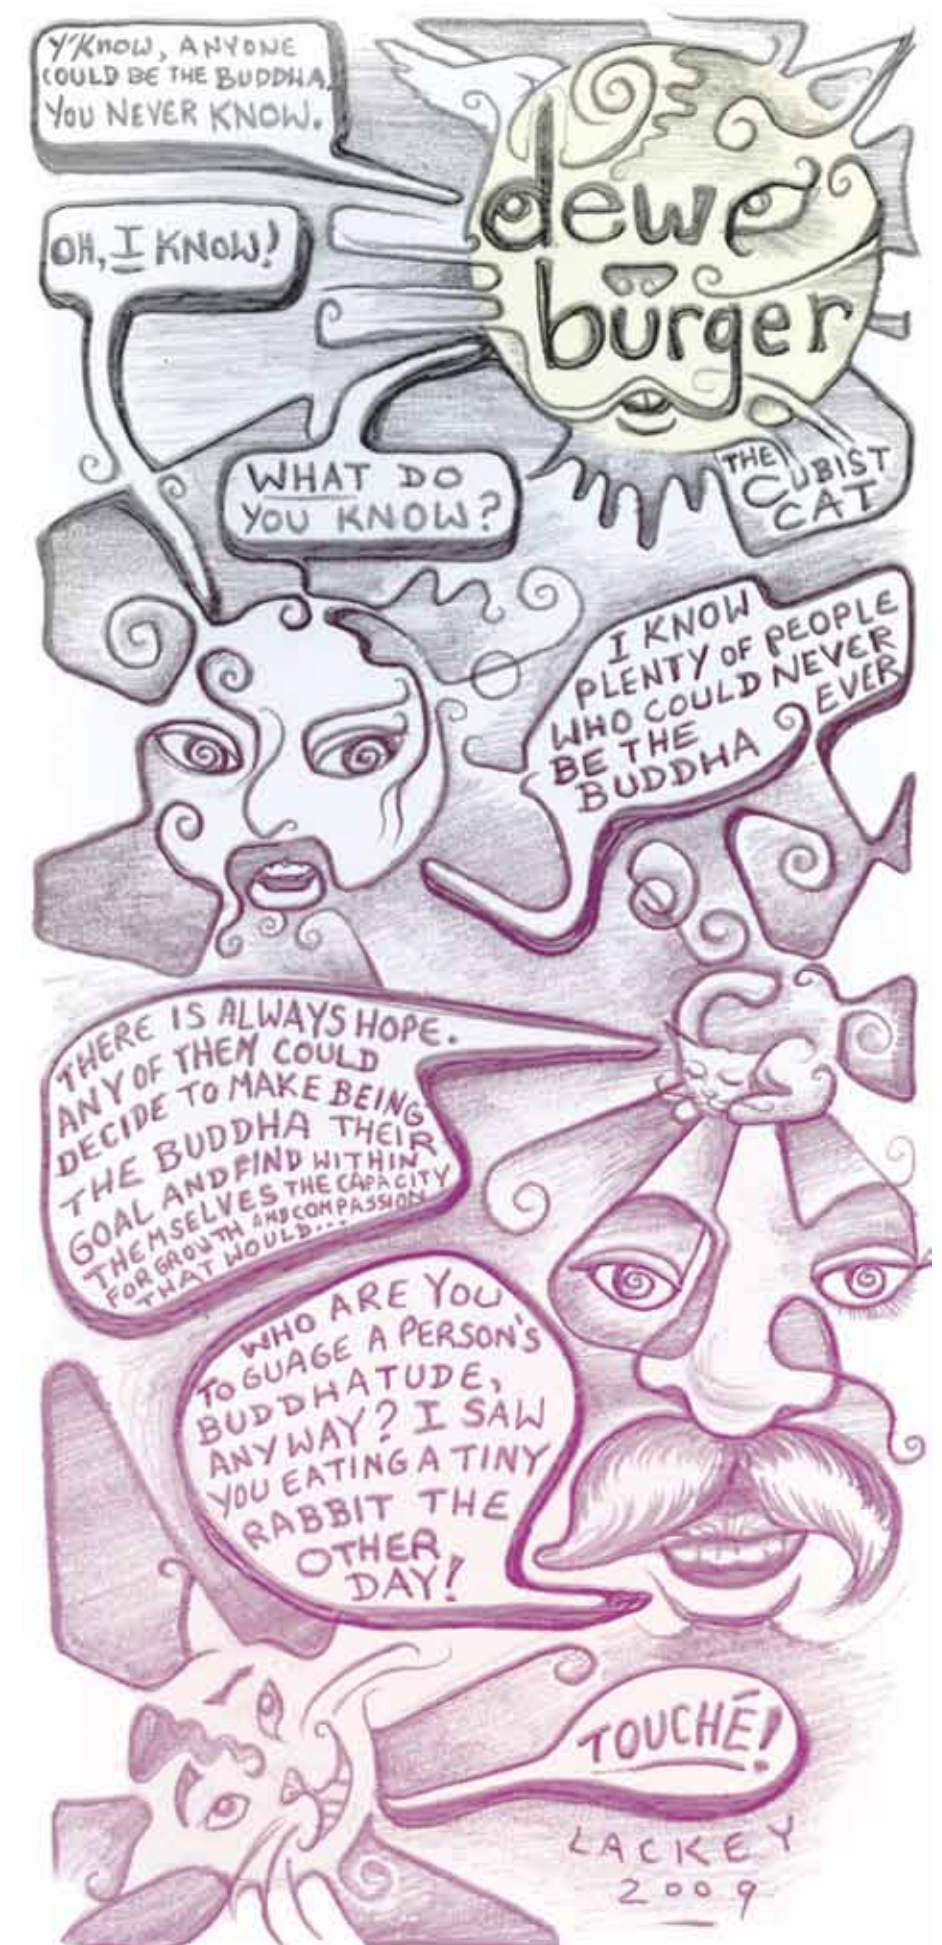 Y'KNOW, ANYONE
COULD BE THE BUDDHA.
YOU NEVER KNOW.
dew
bürger
OH, I KNOW!
WHAT DO
YOU KNOW?
THE
CUBIST
CAT
I KNOW
PLENTY OF PEOPLE
WHO COULD NEVER
BE THE EVER
BUDDHA
THERE IS ALWAYS HOPE.
ANY OF THEM COULD
DECIDE TO MAKE BEING
THE BUDDHA THEIR
GOAL AND FIND WITHIN
THEMSELVES THE CAPACITY
FOR GROWTH AND COMPASSION
THAT WOULD...
WHO ARE YOU
TO GUAGE A PERSON'S
BUDDHATUDE,
ANYWAY? I SAW
YOU EATING A TINY
RABBIT THE
OTHER
DAY!
TOUCHÉ!
LACKEY
2009